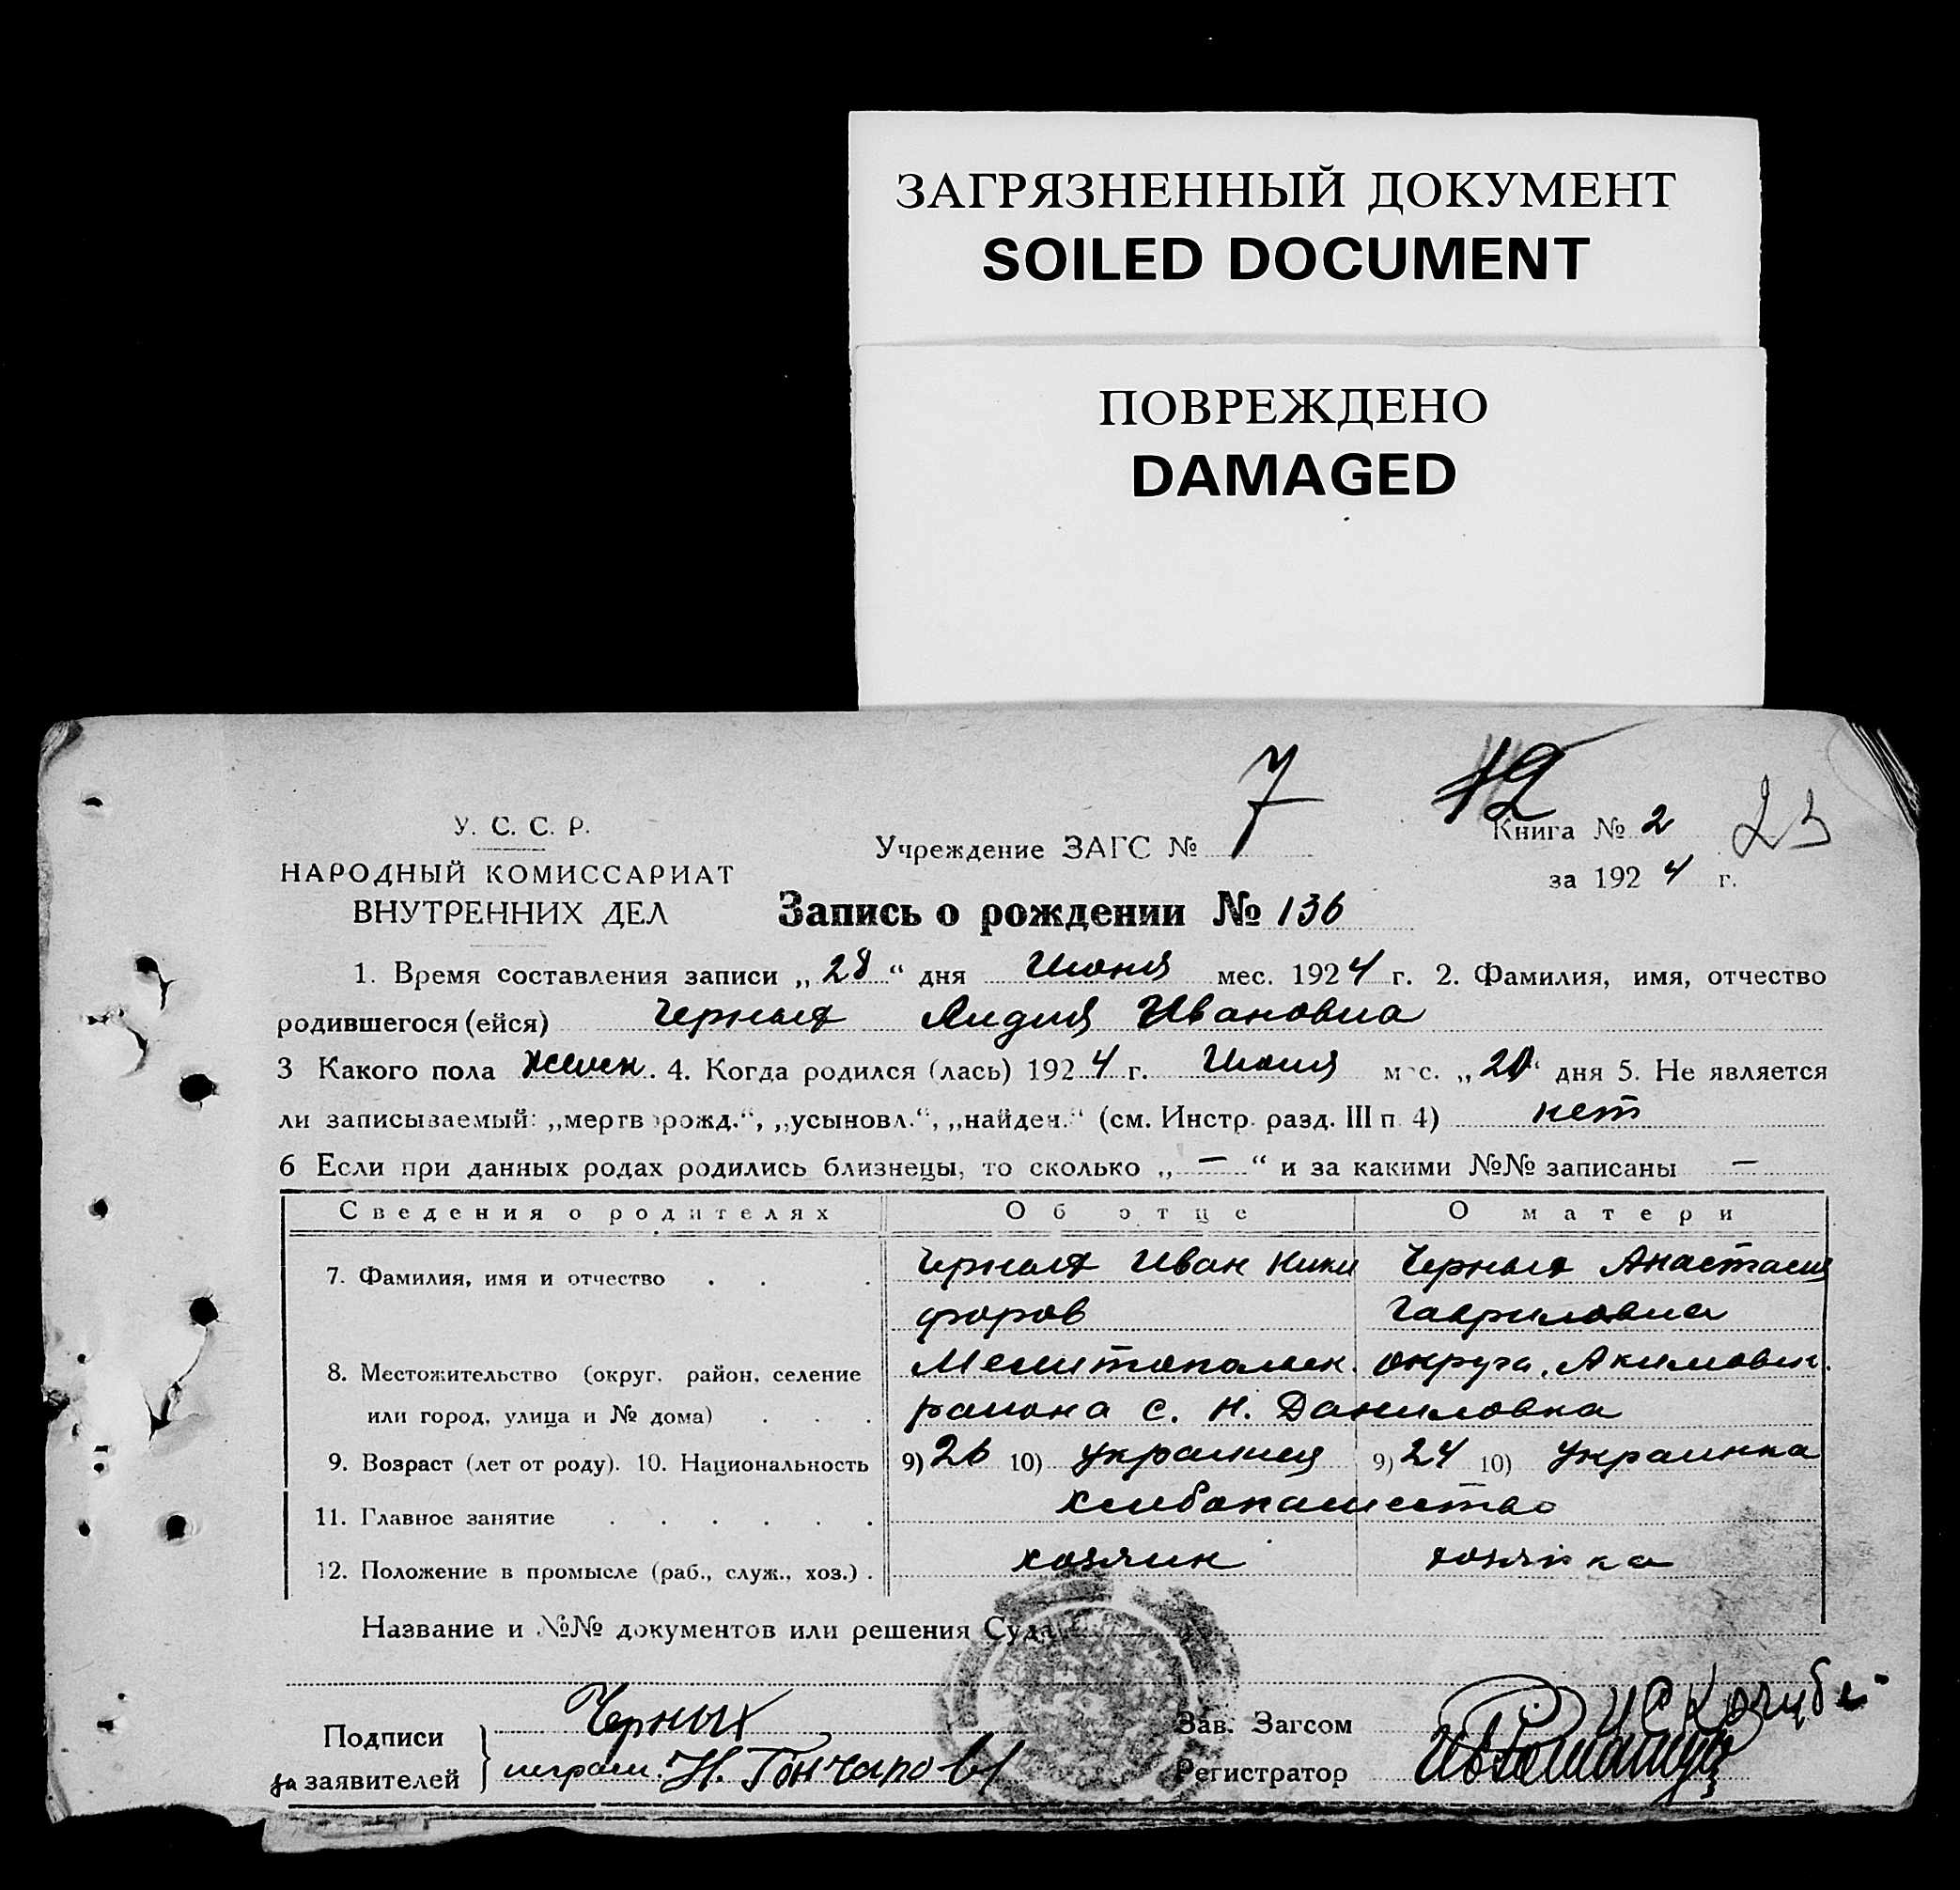 ЗАГРЯЗНЕННЫЙ ДОКУМЕНТ
SOILED DOCUMENT
ПОВРЕЖДЕНО
DAMAGED
12
23
У. С. С. Р.
НАРОДНЫЙ КОМИССАРИАТ
ВНУТРЕННИХ ДЕЛ
Учреждение ЗАГС № 7
Книга № 2
за 1924 г.
Запись о рождении № 136
1. Время составления записи „28“ дня Июня мес. 1924 г. 2. Фамилия, имя, отчество
родившегося (ейся) Черных Лидия Ивановна
3 Какого пола женск. 4. Когда родился (лась) 1924 г. Июня мес. „20“ дня 5. Не является
ли записываемый: „мертворожд.“, „усыновл.“, „найден.“ (см. Инстр. разд. III п. 4) нет
6 Если при данных родах родились близнецы, то сколько „—“ и за какими №№ записаны —
Сведения о родителях Об отце О матери
7. Фамилия, имя и отчество Черных Иван Ники Черных Анастасия
форов Гавриловна
8. Местожительство (округ, район, селение Мелитопольск. округа, Акимовск.
или город, улица и № дома) района с. Н. Даниловка
9. Возраст (лет от роду). 10. Национальность 9) 26 10) украинец 9) 24 10) Украинка
11. Главное занятие хлебопашество
12. Положение в промысле (раб., служ., хоз.) хозяин хозяйка
Название и №№ документов или решения Суда
Подписи Черных Зав. Загсом
за заявителей неграм. Н. Гончаров Регистратор